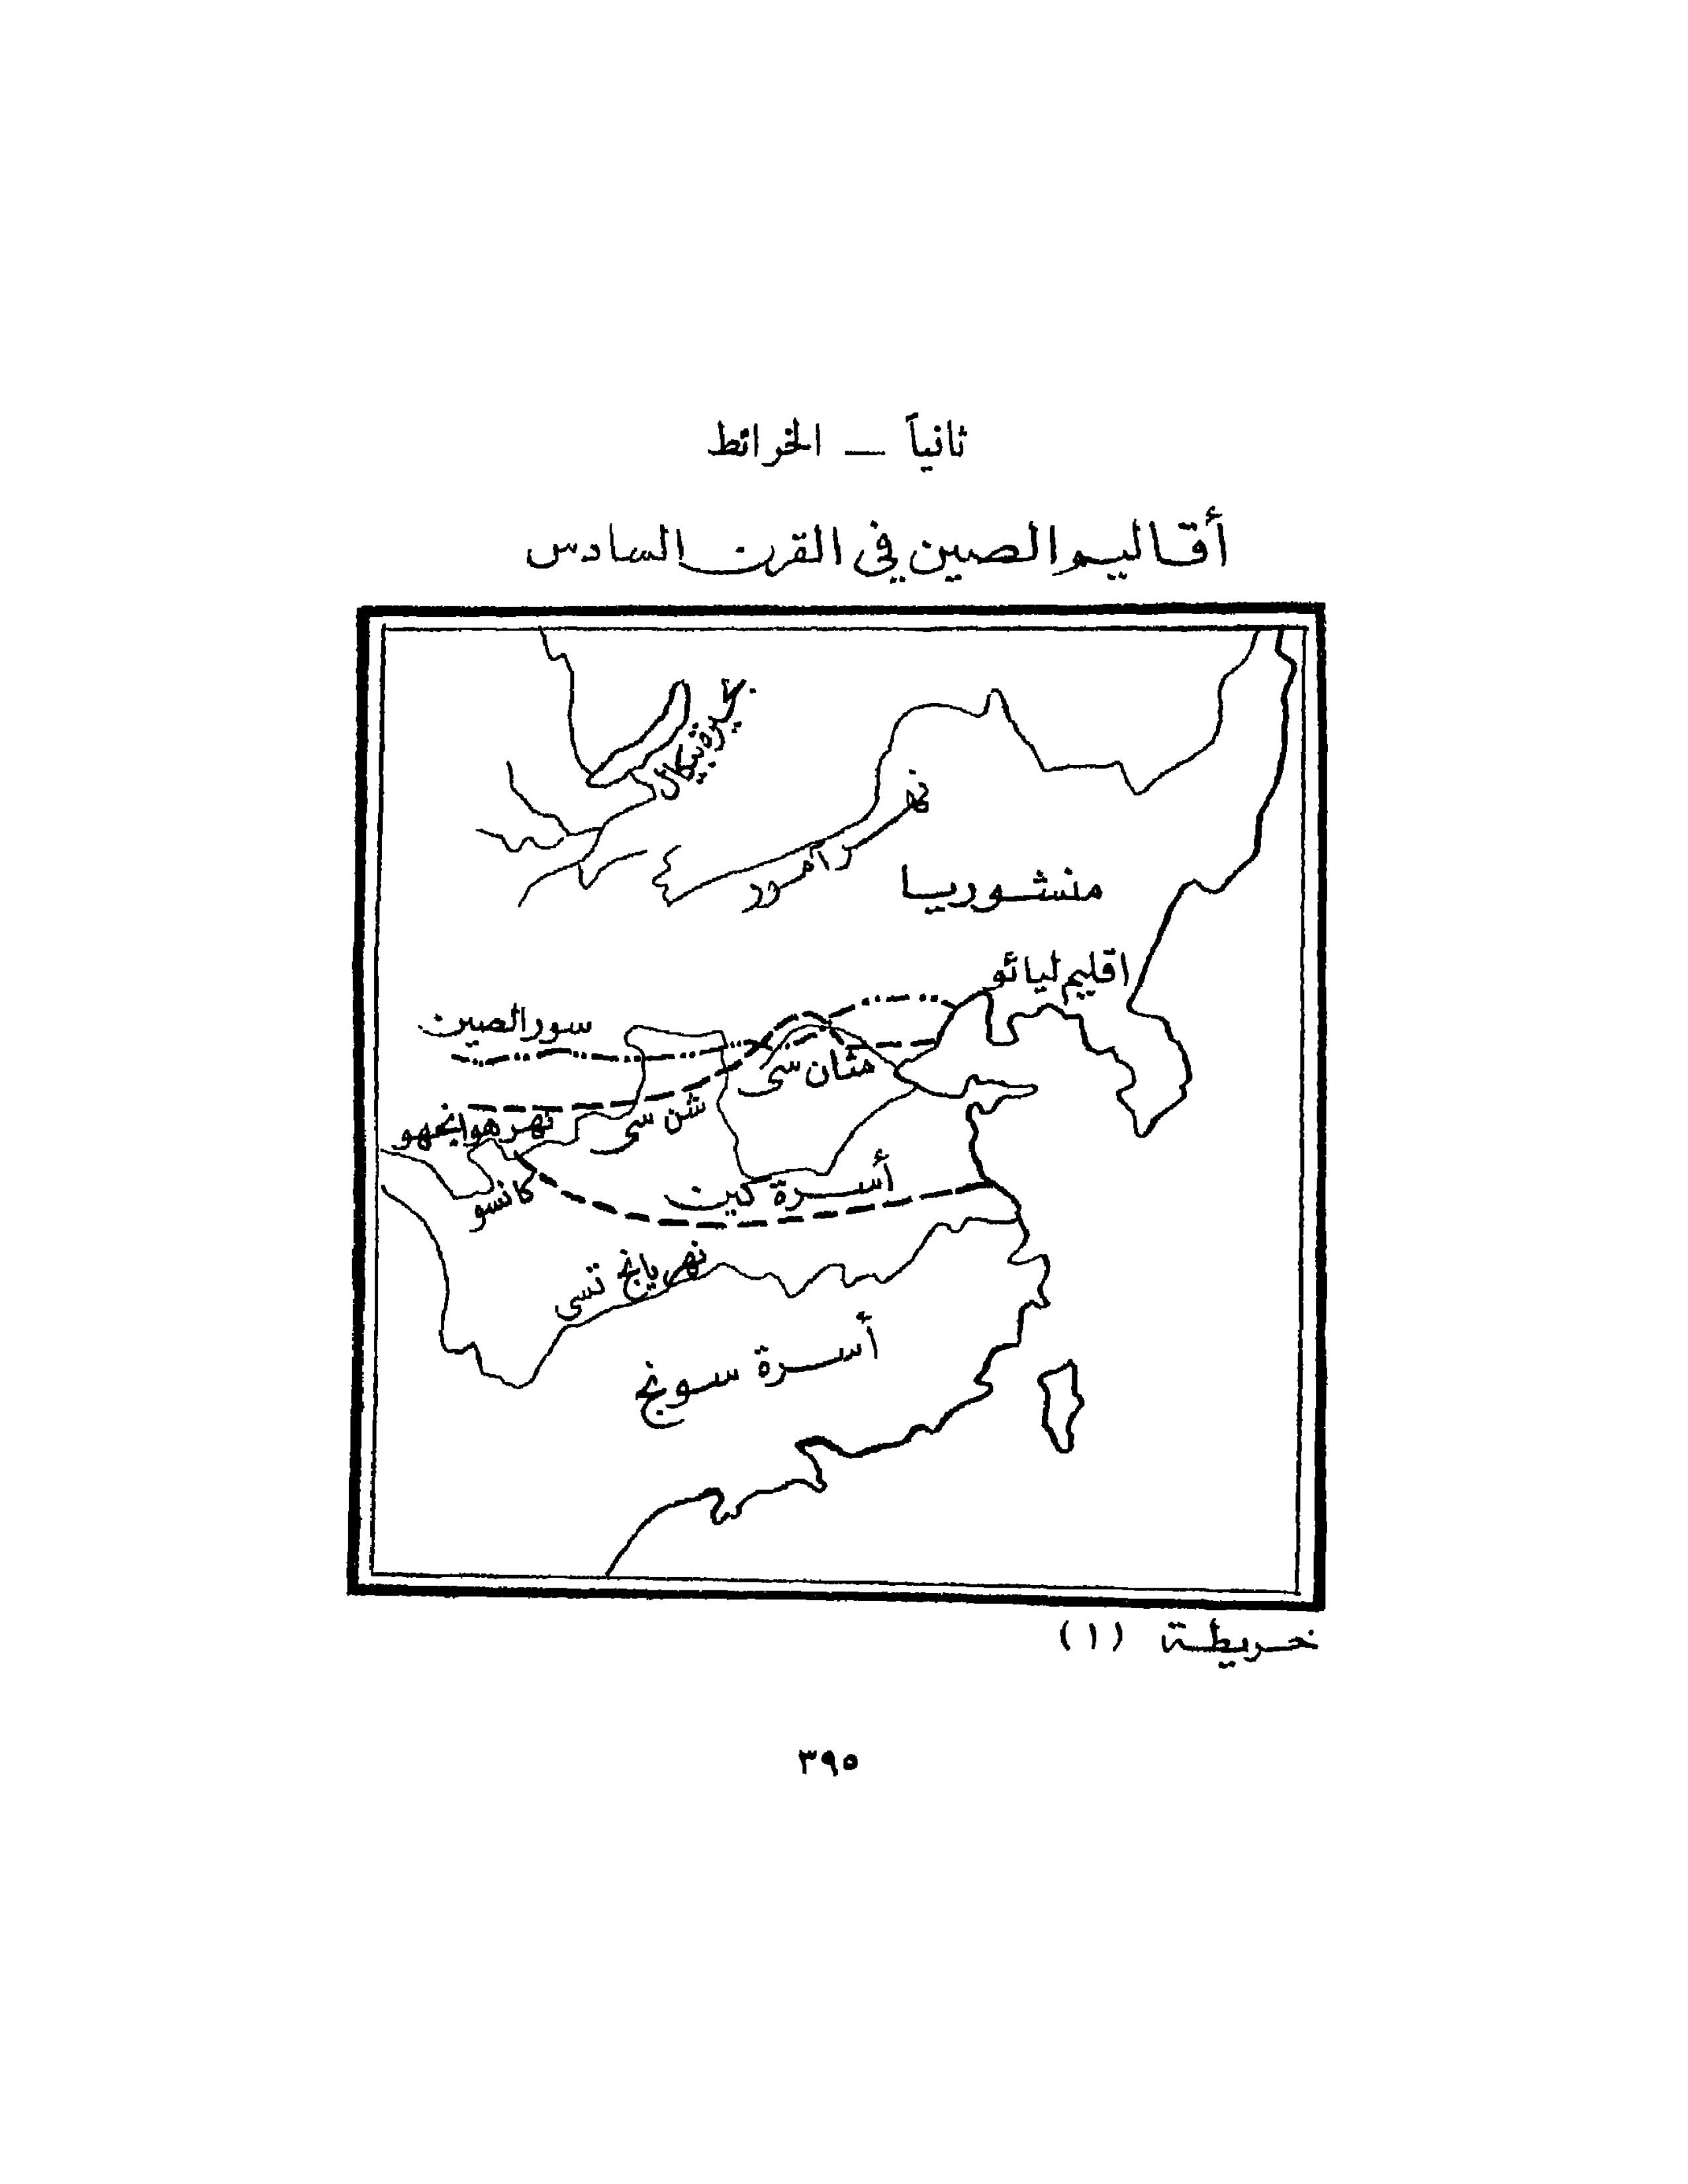 ثانياً — الخرائط
أقاليم الصين في القرن السادس
بحيرة بيكال
نهر آمور
منشوريا
اقليم ليائو
سور الصين
شان سى
شن سى
نهر هوانجهو
كانسو
أسرة كين
نهر يانج تسى
أسرة سونج
خريطة (١)
٣٩٥